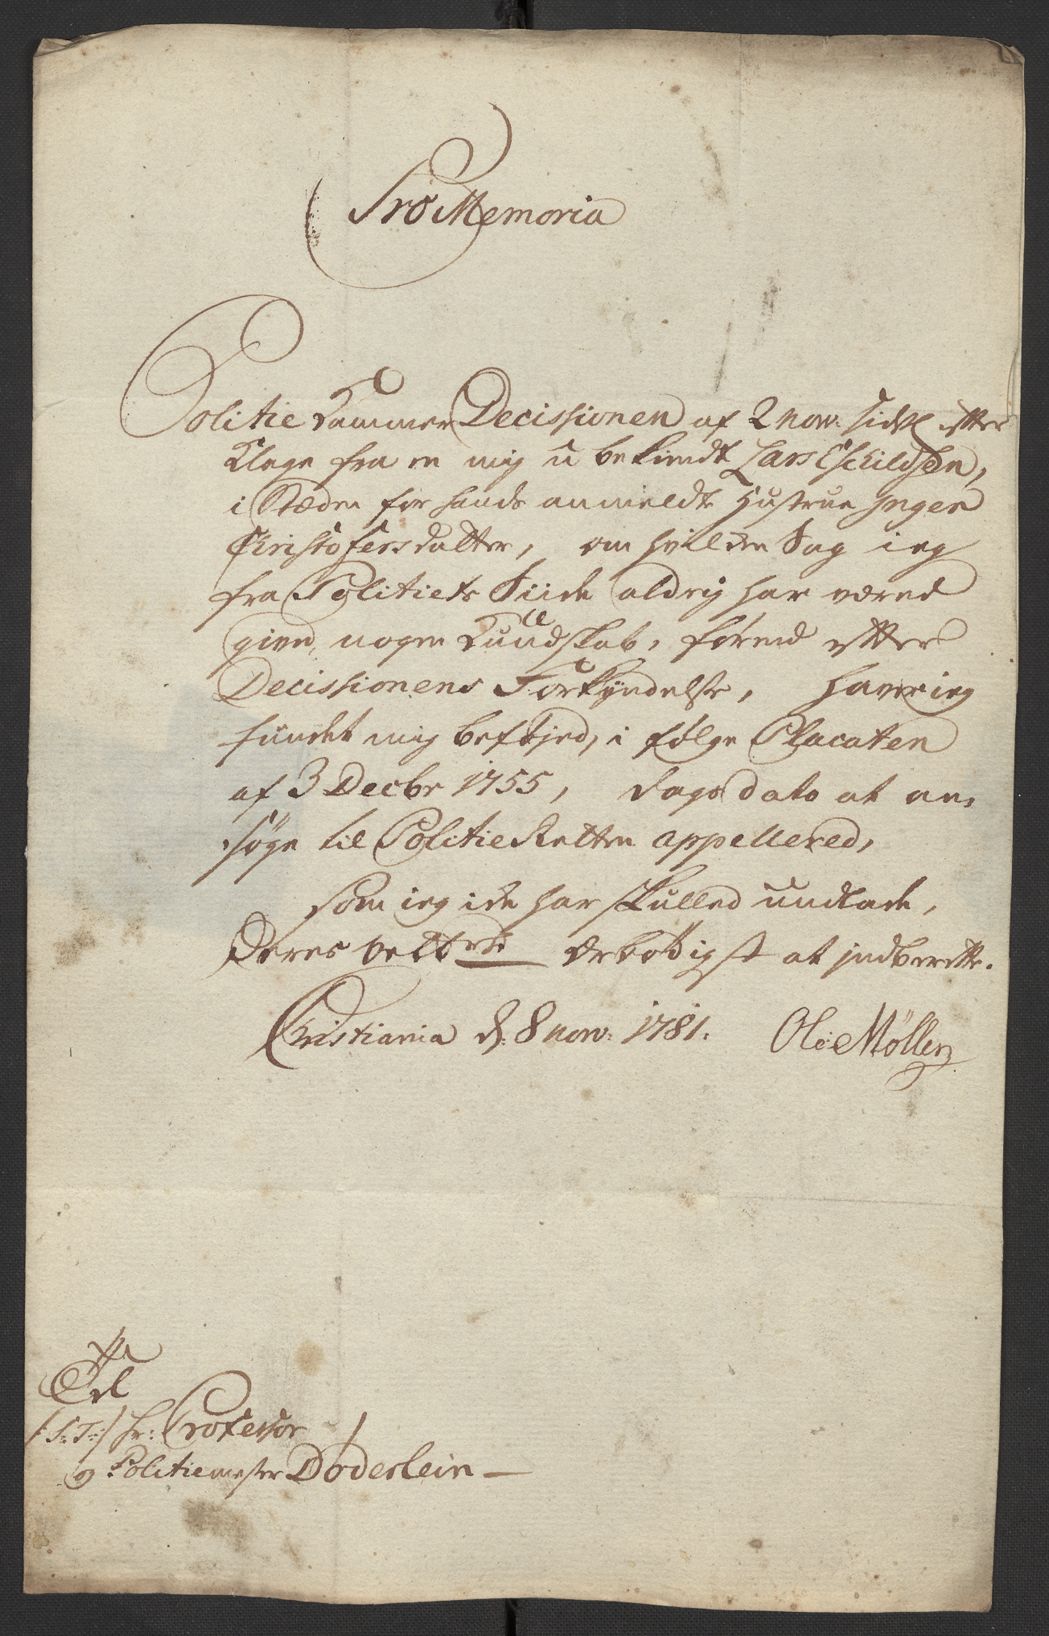 Pro Memoria
Politie Kammer Decissionen af 2 nov: sidstl. efter
Klage fra en mig u bekiendt Lars Eschildsen,
i Stæden for hands anmeldte Hustrue Inger
Christofersdatter, om hvilken Sag ieg
fra Politiets Siide aldrig har været
given nogen Kundskab, førend efter
Decissionens Forkyndelse, haver ieg
fundet mig beføjed, i følge Placaten
af 3 Decbr 1755, dags dato at an-
søge til Politie Retten appellered,
som ieg ide har skulled undlade,
Deres velb ærbødigst at indberette.
Christiania d: 8 nov: 1781. Ole Møller
Til
/:S:T:/ Hr: Professor
og Politiemester Døderlein